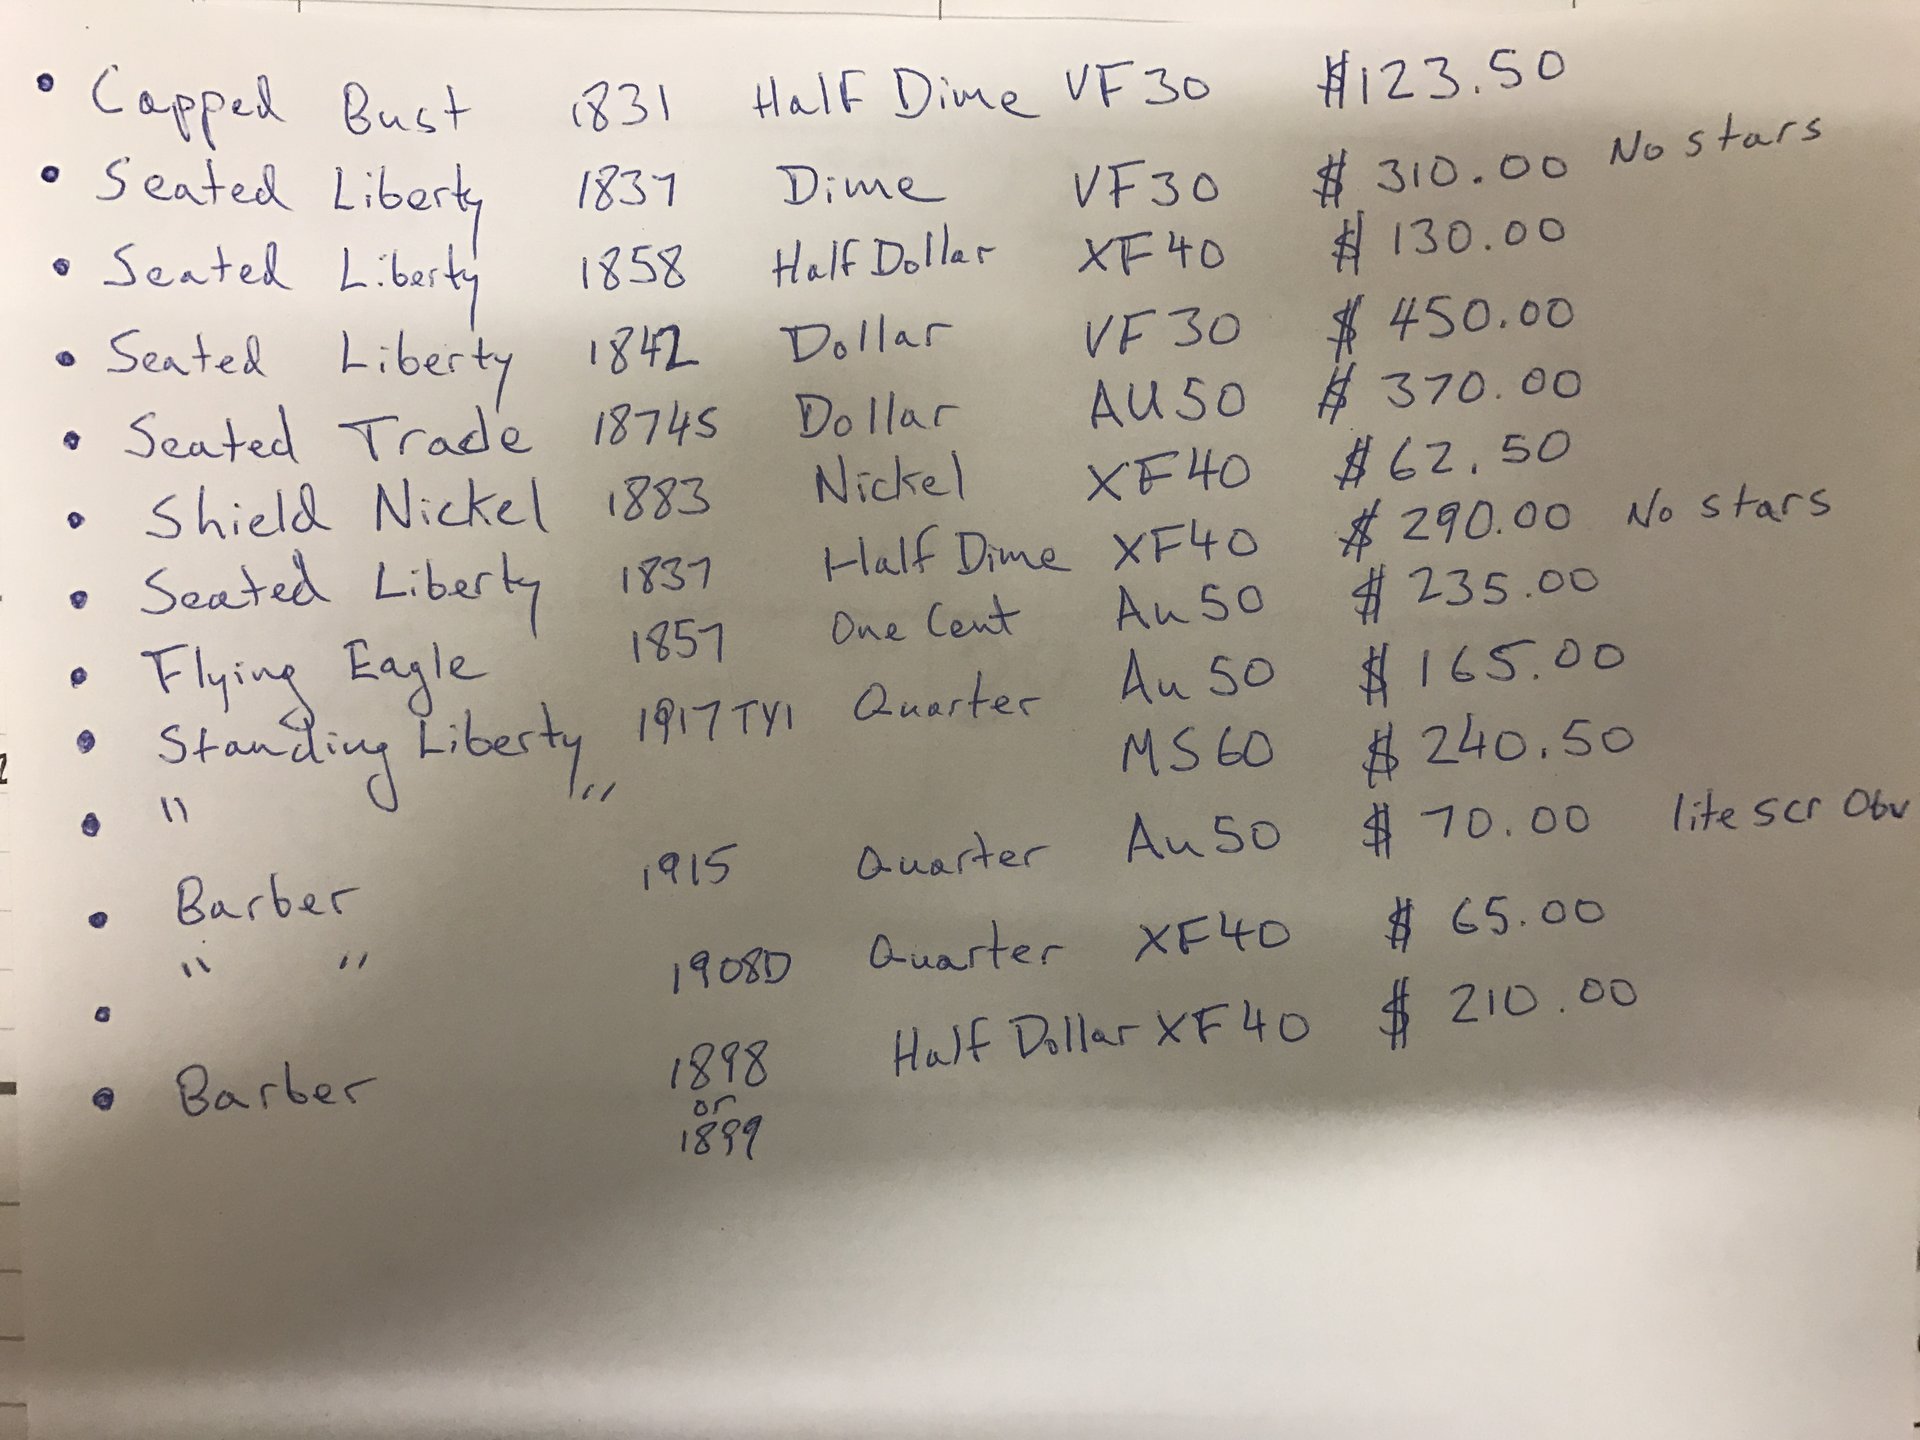 • Capped Bust 1831 Half Dime VF30 $123.50
• Seated Liberty 1837 Dime VF30 $310.00 No stars
• Seated Liberty 1858 Half Dollar XF40 $130.00
• Seated Liberty 1842 Dollar VF30 $450.00
• Seated Trade 1874S Dollar AU50 $370.00
• Shield Nickel 1883 Nickel XF40 $62.50
• Seated Liberty 1837 Half Dime XF40 $290.00 No stars
• Flying Eagle 1857 One Cent Au50 $235.00
• Standing Liberty 1917 TY1 Quarter Au50 $165.00
• " " MS60 $240.50
• Barber 1915 Quarter Au50 $70.00 lite scr Obv
• " " 1908D Quarter XF40 $65.00
• Barber 1898 Half Dollar XF40 $210.00
or
1899